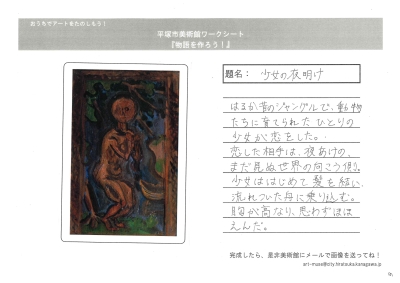 おうちでアートをたのしもう！
平塚市美術館ワークシート
『物語を作ろう！』
題名： 少女の夜明け
はるか昔のジャングルで、動物
たちに育てられたひとりの
少女が恋をした。
恋した相手は、夜あけの、
まだ見ぬ世界の向こう側。
少女ははじめて髪を結い、
流れついた舟に乗り込む。
胸が高なり、思わずほほ
えんだ。
完成したら、是非美術館にメールで画像を送ってね！
art-muse@city.hiratsuka.kanagawa.jp